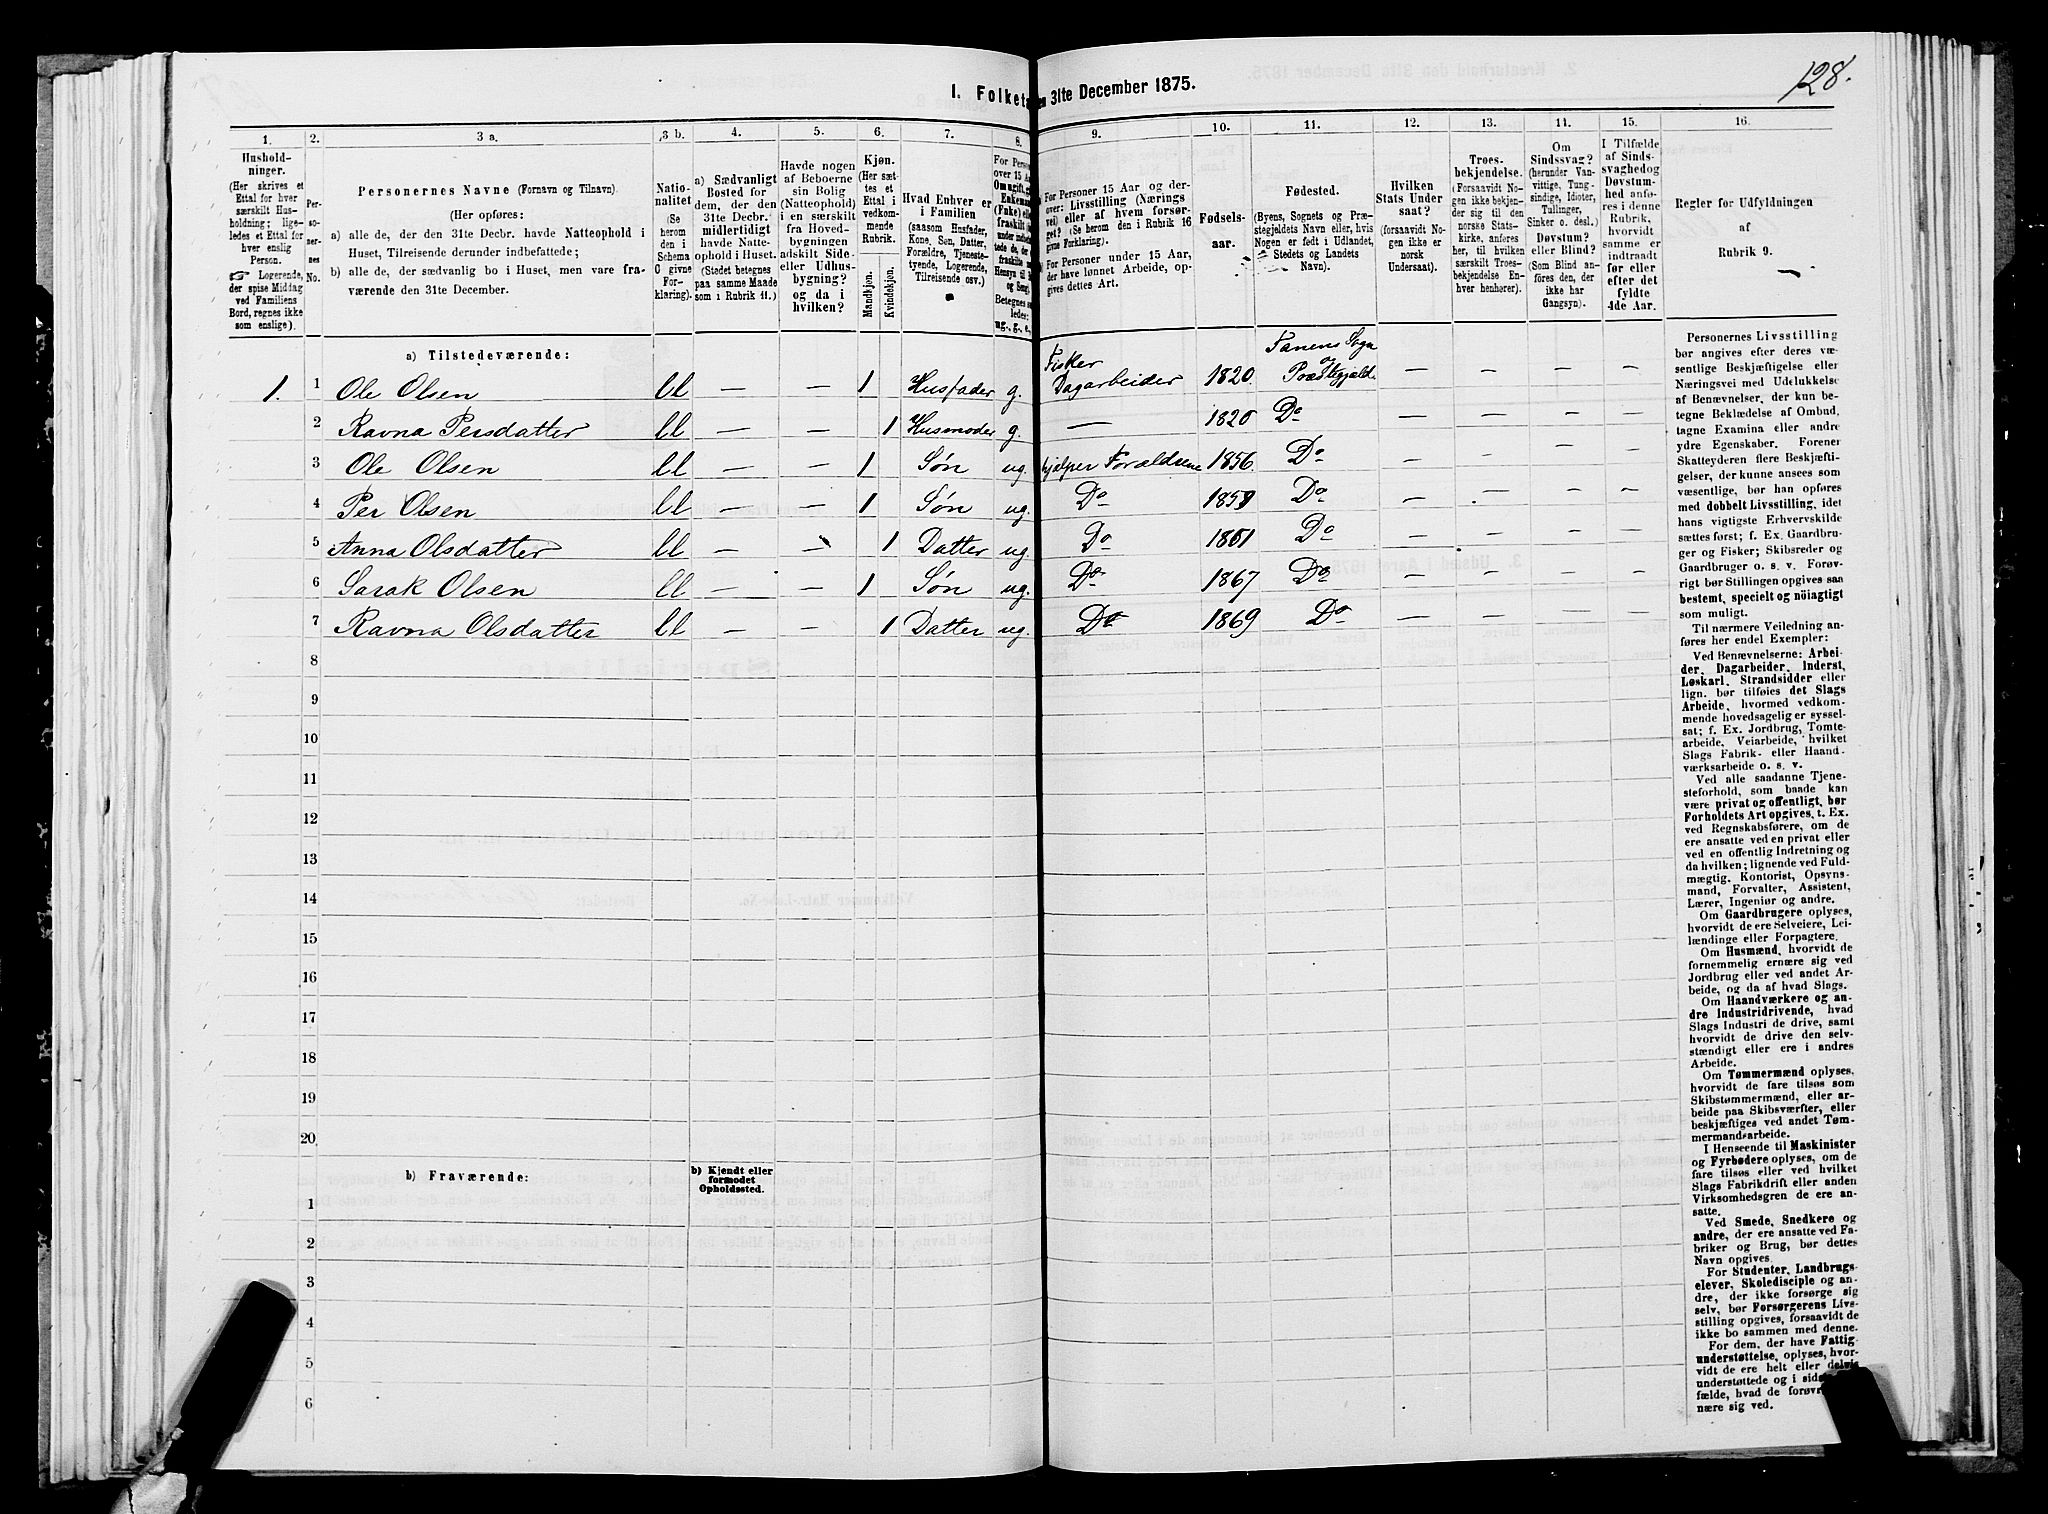 128.
I. Folketa en 31te December 1875.
1.
Hushold-
ninger.
(Her skrives et
Ettal for hver
særskilt Hus-
holdning; lige-
ledes et Ettal for
hver enslig
Person.
☞ Logerende,
der spise Middag
ved Familiens
Bord, regnes ikke
som enslige).
2.
Per-
so-
ner-
nes
No.
3 a.
Personernes Navne (Fornavn og Tilnavn).
(Her opføres:
a) alle de, der den 31te Decbr. havde Natteophold i
Huset, Tilreisende derunder indbefattede;
b) alle de, der sædvanlig bo i Huset, men vare fra-
værende den 31te December.
3 b.
Natio-
nalitet
(Se
herom
den i
Schema
C givne
For-
klaring).
4.
a) Sædvanligt
Bosted for
dem, der den
31te Decbr.
midlertidigt
havde Natte-
ophold i Huset.
(Stedet betegnes
paa samme Maade
som i Rubrik 11.)
5.
Havde nogen
af Beboerne
sin Bolig
(Natteophold)
i en særskilt
fra Hoved-
bygningen
adskilt Side-
eller Udhus-
bygning?
og da i
hvilken?
6.
Kjøn.
(Her sæt-
tes et
Ettal i
vedkom-
mende
Rubrik.
Mandkjøn.
Kvindekjøn.
7.
Hvad Enhver er
i Familien
(saasom Husfader,
Kone, Søn, Datter,
Forældre, Tjeneste-
tyende, Logerende,
Tilreisende osv.)
8.
For Person
over 15 Aa
Om ugift, g
Enkema
(Enke) ell
fraskilt
Betegnes s
ledes:
ug., g., e.,
9.
For Personer 15 Aar og der-
over: Livsstilling (Nærings
vei) eller af hvem forsør-
get? (Se herom den i Rubrik 16
givne Forklaring).
For Personer under 15 Aar,
der have lønnet Arbeide, op-
gives dettes Art.
10.
Fødsels-
aar.
11.
Fødested.
(Byens, Sognets og Præ-
stegjeldets Navn eller, hvis
Nogen er født i Udlandet,
Stedets og Landets
Navn).
12.
Hvilken
Stats Under
saat?
(forsaavidt No-
gen ikke er
norsk
Undersaat).
13.
Troes-
bekjendelse.
(Forsaavidt No-
gen ikke bekjen-
der sig til den
norske Stats-
kirke, anføres
her, til hvilken
særskilt Troes-
bekjendelse En-
hver henhører).
14.
Om
Sindssvag?
(herunder Van-
vittige, Tung-
sindige, Idioter,
Tullinger,
Sinker o. desl.)
Døvstum?
eller Blind?
(Som Blind an-
føres den, der
ikke har
Gangsyn).
15.
I Tilfælde
af Sinds-
svaghedog
Døvstum-
hed anfø-
res i denne
Rubrik,
hvorvidt
samme er
indtraadt
før eller
efter det
fyldte
4de Aar.
16.
Regler for Udfyldningen
af
Rubrik 9.
a) Tilstedeværende:
1. 1 Ole Olsen ll — — 1 Husfader g. Fisker Dagarbeider 1820. Tanens Sogn og Præstegjæld. — — — —
2 Ravna Persdatter ll — — 1 Husmoder g. — 1820 Do — — — —
3 Ole Olsen ll — — 1 Søn ug. hjælper Forældrene 1856. Do — — — —
4 Per Olsen ll — — 1 Søn ug. Do 1859 Do — — — —
5 Anna Olsdatter ll — — 1 Datter ug. Do 1861 Do — — — —
6 Sarak Olsen ll — — 1 Søn ug. Do 1867 Do — — — —
7 Ravna Olsdatter ll — — 1 Datter ug. Do 1869 Do — — — —
8
9
10
11
12
13
14
15
16
17
18
19
20
b) Fraværende:
b) Kjendt eller
formodet
Opholdssted.
1
2
3
4
5
6
Personernes Livsstilling
bør angives efter deres væ-
sentlige Beskjæftigelse eller
Næringsvei med Udelukkelse
af Benævnelser, der kun be-
tegne Beklædelse af Ombud,
tagne Examina eller andre
ydre Egenskaber. Forener
Skatteyderen flere Beskjæfti-
gelser, der kunne ansees som
væsentlige, bør han opføres
med dobbelt Livsstilling, idet
hans vigtigste Erhvervskilde
sættes først; f. Ex. Gaardbru-
ger og Fisker; Skibsreder og
Gaardbruger o. s. v. Forøv-
rigt bør Stillingen opgives saa
bestemt, specielt og nöiagtigt
som muligt.
Til nærmere Veiledning an-
føres her endel Exempler:
Ved Benævnelserne: Arbei-
der, Dagarbeider, Inderst,
Løskarl, Strandsidder eller
lign. bør tilføies det Slags
Arbeide, hvormed vedkom-
mende hovedsagelig er syssel-
sat; f. Ex. Jordbrug, Tomte-
arbeide, Veiarbeide, hvilket
Slags Fabrik- eller Haand-
værksarbeide o. s. v.
Ved alle saadanne Tjene-
steforhold, som baade kan
være privat og offentligt, bør
Forholdets Art opgives, f. Ex.
ved Regnskabsførere, om de
ere ansatte ved en privat eller
ved en offentlig Indretning og
da hvilken; lignende ved Fuld-
mægtig, Kontorist, Opsyns-
mand, Forvalter, Assistent,
Lærer, Ingeniør og andre.
Om Gaardbrugere oplyses,
hvorvidt de ere Selveiere, Lei-
lændinge eller Forpagtere.
Om Husmænd, hvorvidt de
fornemmelig ernære sig ved
Jordbrug eller ved andet Ar-
beide, og da af hvad Slags.
Om Haandværkere og an-
dre Industridrivende, hvad
Slags Industri de drive, samt
hvorvidt de drive den selv-
stændigt eller ere i andres
Arbeide.
Om Tømmermænd oplyses,
hvorvidt de fare tilsøs som
Skibstømmermænd, eller ar-
beide paa Skibsværfter, eller
beskjæftiges ved andet Tøm-
mermandsarbeide.
I Henseende til Maskinister
og Fyrbødere oplyses, om de
fare tilsøs eller ved hvilket
Slags Fabrikdrift eller anden
Virksomhedsgren de ere an-
satte.
Ved Smede, Snedkere og
andre, der ere ansatte ved Fa-
briker og Brug, bør dettes
Navn opgives.
For Studenter, Landbrugs-
elever, Skoledisciple og an-
dre, der ikke forsørge sig
selv, bør Forsørgerens Livs-
stilling opgives, forsaavidt de
ikke bo sammen med denne.
For dem, der have Fattig-
understøttelse, oplyses, hvor-
vidt de ere helt eller delvis
understøttede og i sidst
fælde, hvad de forøvr
nære sig ved.